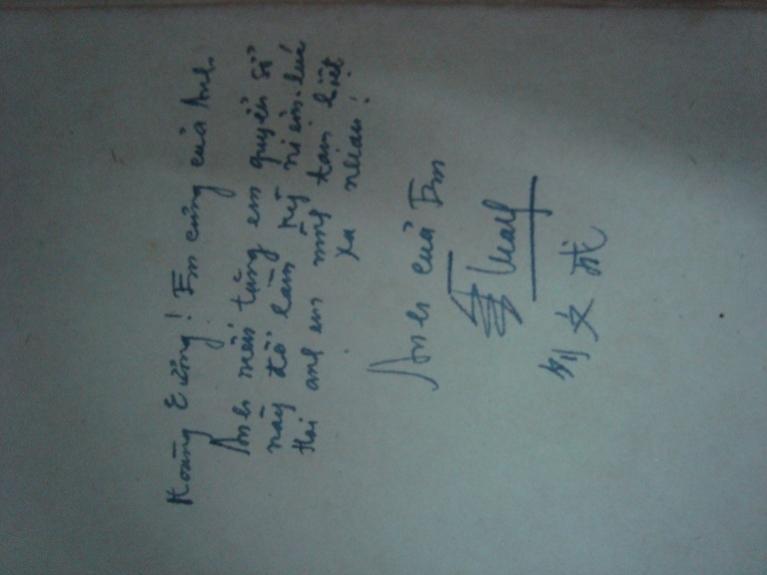 Hoàng Cường! Em cưng của Anh.
Anh mến tặng em quyển sổ
này để làm kỷ niệm lúc
Hai anh em mình tạm biệt
xa nhau!
Anh của Em
文成